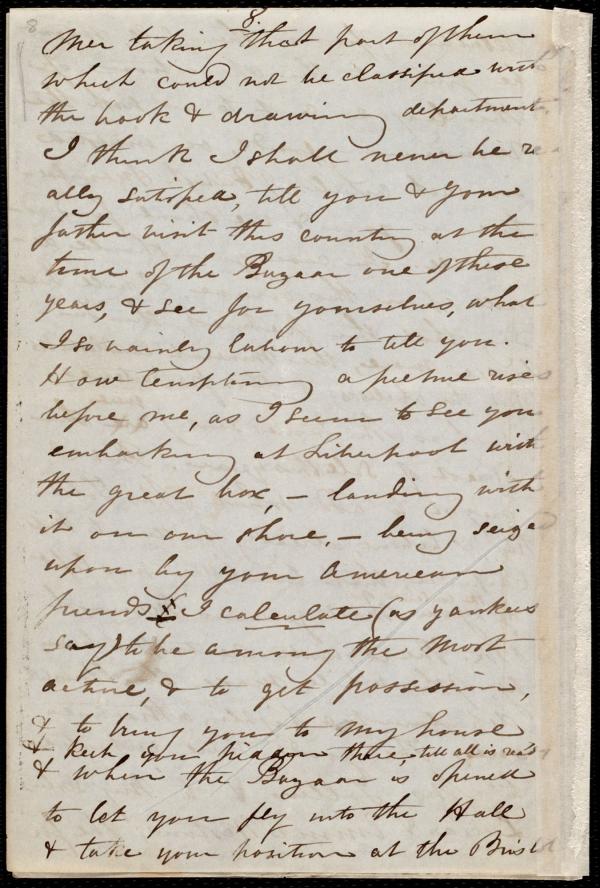 8.
8
Mer taking that part of them
which could not be classified with
the book & drawing department.
I think I shall never be re
ally satisfied, till you & your
father visit this country at the
time of the Bazaar one of these
years, & see for yourselves, what
I so vainly labour to tell you.
How tempting a picture rises
before me, as I seem to see you
embarking at Liverpool with
the great box, – landing with
it on our shore, – being seized
upon by your American
friends X (I calculate (as yankees
say) to be among the most
active, & to get possession,
& to bring you to my house
& keep you hidden there, till all is ready
& when the Bazaar is opened
to let you fly into the Hall
& take your position at the Bristol